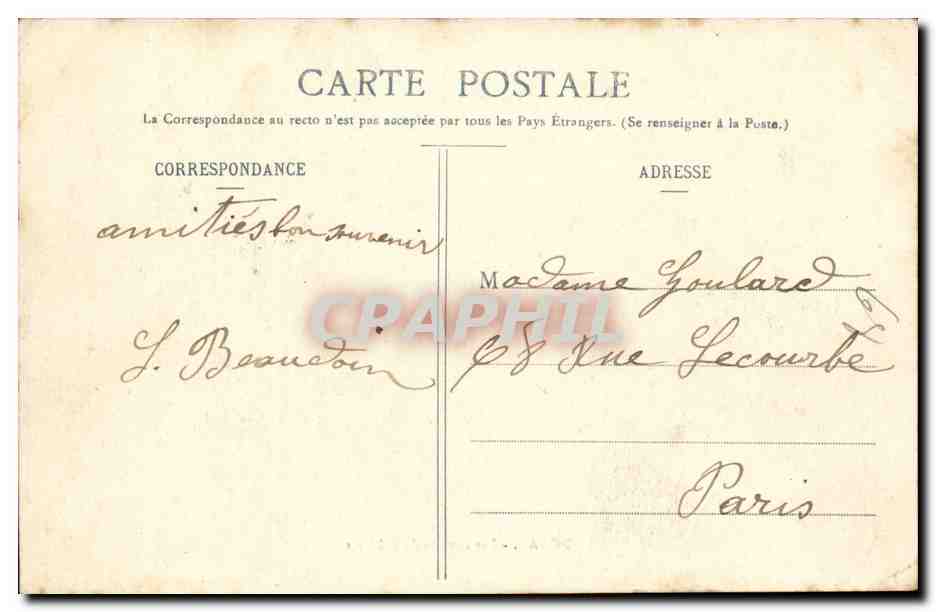 CARTE POSTALE
La Correspondance au recto n'est pas acceptée par tous les Pays Étrangers. (Se renseigner à la Poste.)
CORRESPONDANCE
amitiés bon souvenir
L. Beaudoin
ADRESSE
Madame Goulard
68 Rue Lecourbe
Paris
CPAPHIL